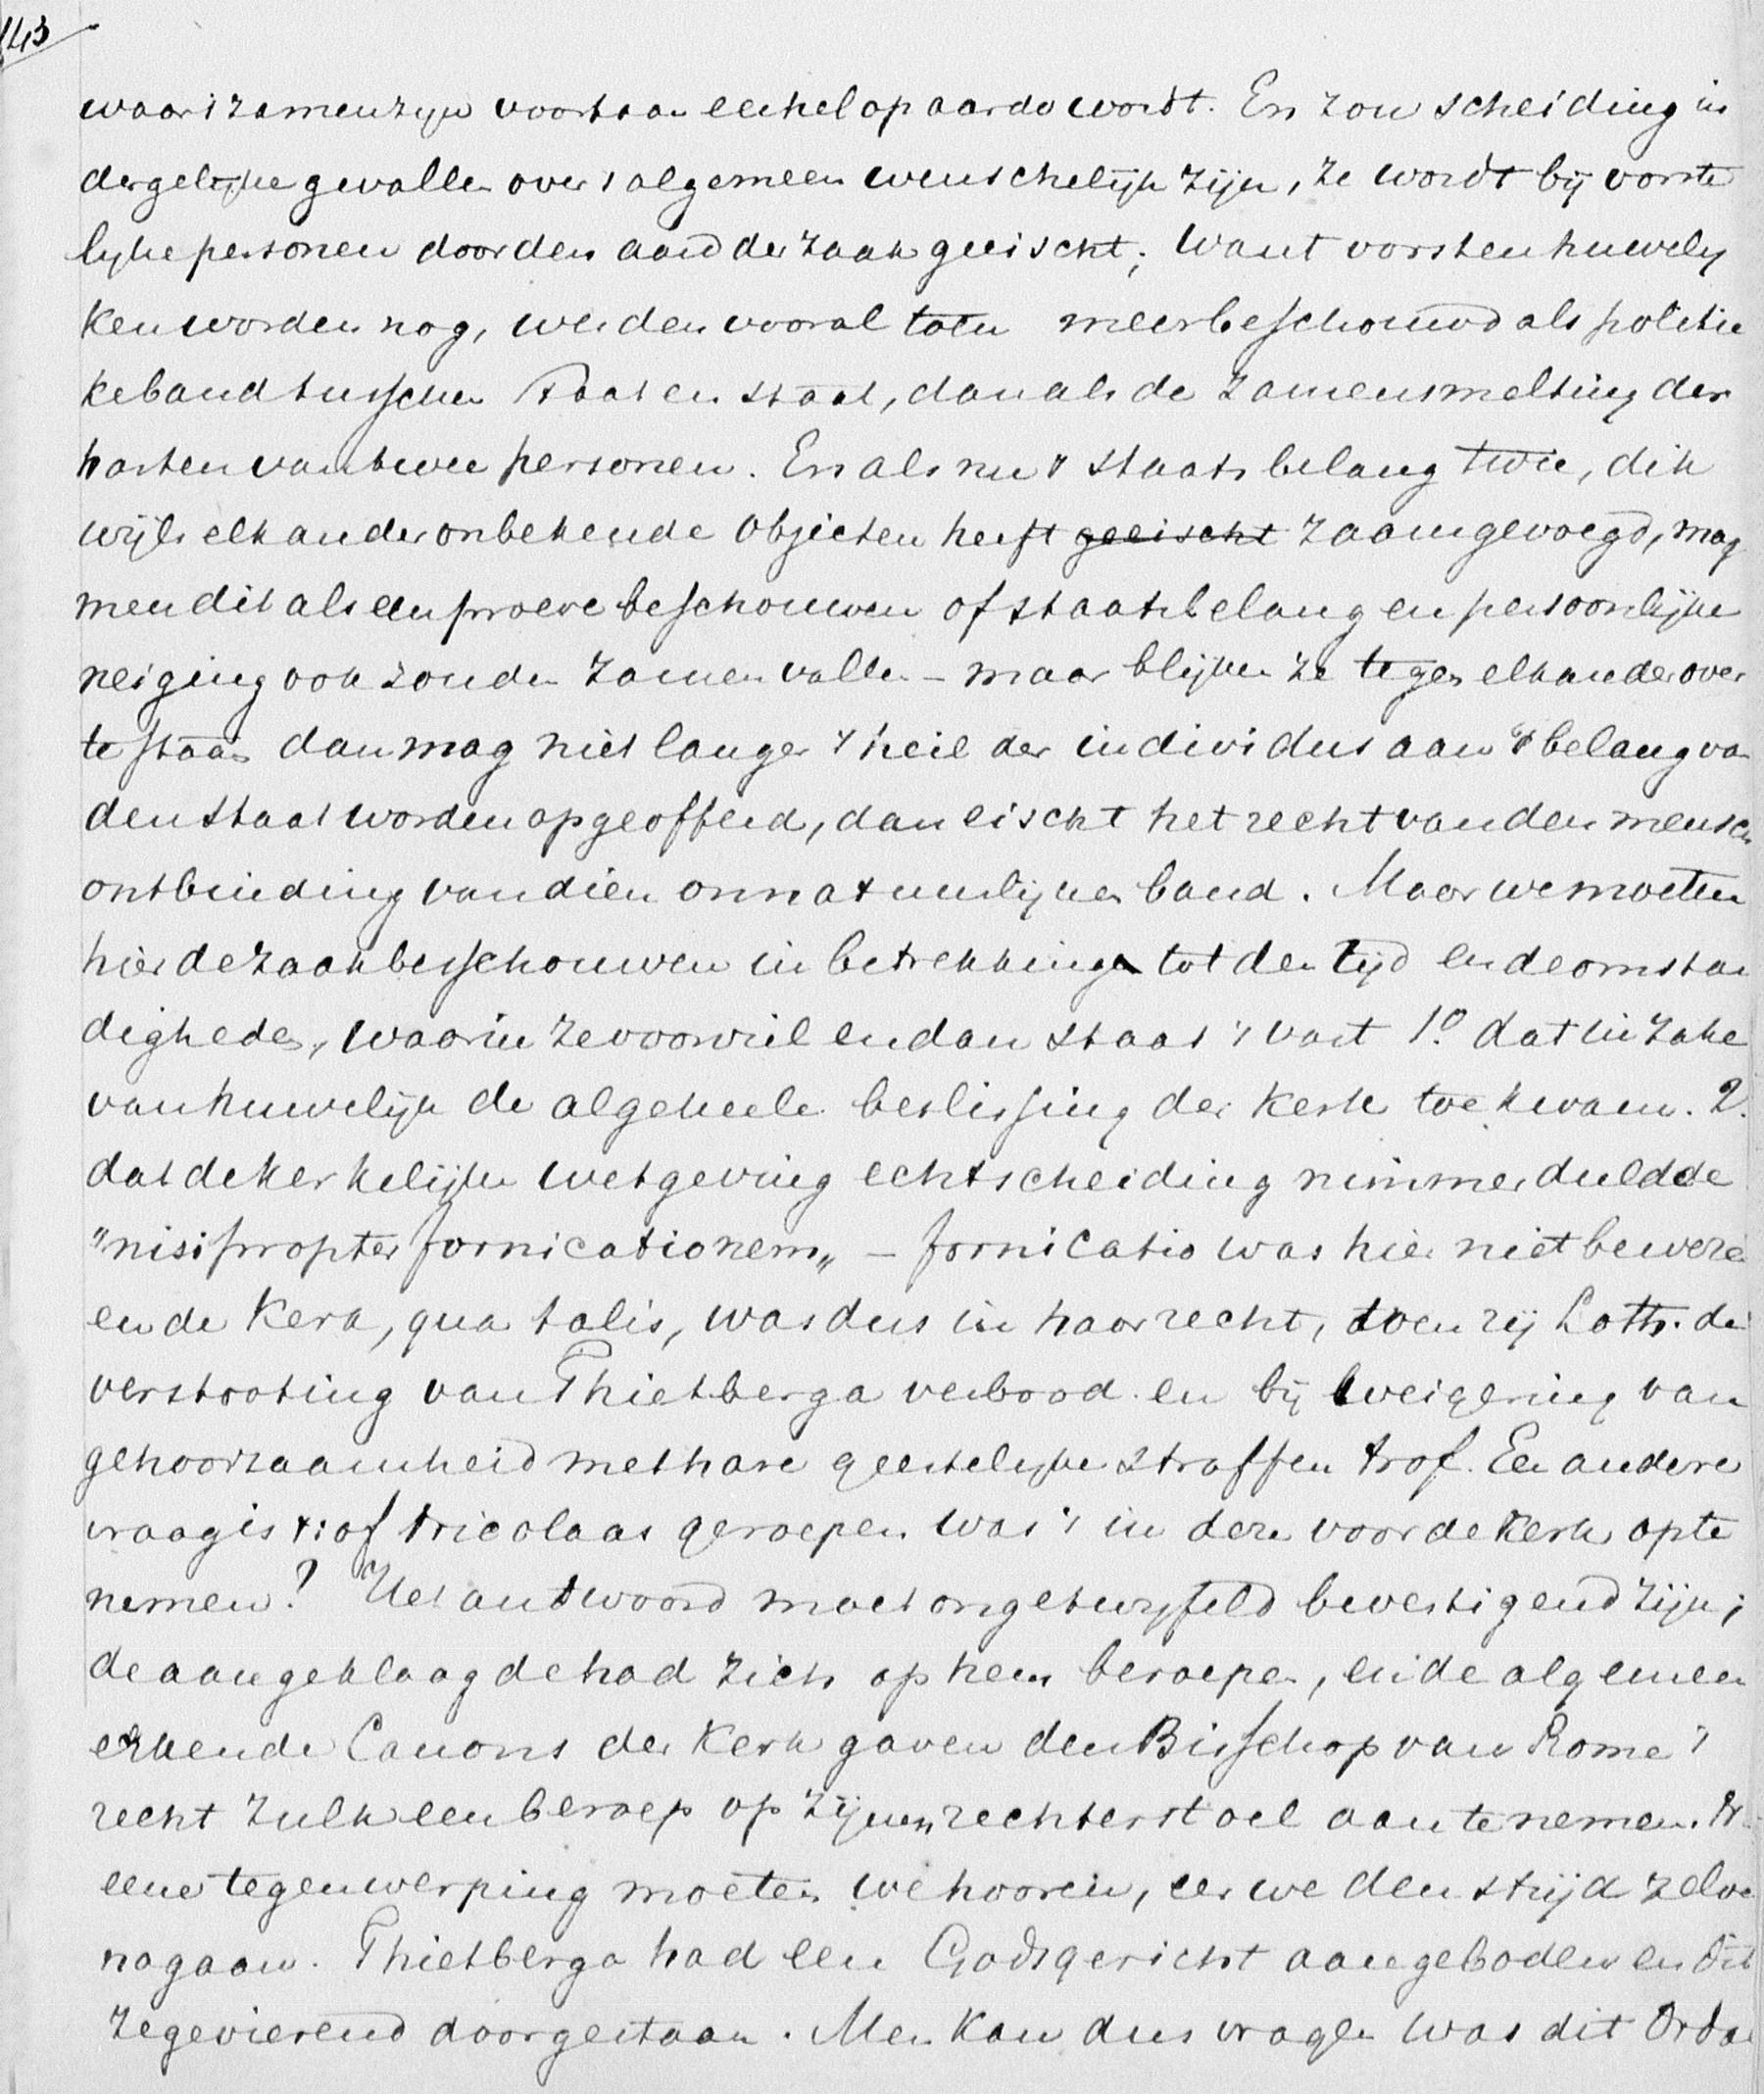 143
waar 't zamenzijn voortaan een hel op aarde wordt. En zou scheiding in
dergelijke gevallen over 't algemeen wenschelijk zijn, ze wordt bij vorste
lijke personen door den aard der zaak geeischt; want vorstenhuwelij
ken worden nog, werden vooral toen meer beschouwd als politie
ke band tusschen staat en staat, dan als de zamensmelting der
harten van twee personen. En als nu 't staatsbelang twee, dik
wijls elkander onbekende objecten heeft geeischt zaamgevoegd, mag
men dit als een proeve beschouwen of staatsbelang en persoonlijke
neiging ook zouden zamenvallen – maar blijken ze tegen elkander over
te staan dan mag niet langer 't heil der individus aan 't belang van
den staat worden opgeofferd, dan eischt het recht van den mensch
ontbinding van dien onnatuurlijken band. Maar we moeten
hier de zaak beschouwen in betrekking tot den tijd en de omstan
digheden, waarin ze voorviel en dan staat 't vast 1o. dat in zake
van huwelijk de algeheele beslissing der kerk toekwam. 2.
dat de kerkelijke wetgeving echtscheiding nimmer duldde
"nisi propter fornicationem" – fornicatio was hier niet bewezen
en de Kerk, qua talis, was dus in haar recht, toen zij Loth. de
verstooting van Thietberga verbood en bij weigering van
gehoorzaamheid met hare geestelijke straffen trof. Een andere
vraag is 't: of Nicolaas geroepen was 't in deze voor de Kerk op te
nemen? Het antwoord moet ongetwijfeld bevestigend zijn;
de aangeklaagde had zich op hem beroepen, en de algemeen
erkende Canons der Kerk gaven den Bisschop van Rome 't
recht zulk een beroep op zijnen rechterstoel aan te nemen.
eene tegenwerping moeten we hooren, eer we den strijd zelve
nagaan. Thietberga had een Godsgericht aangeboden en dit
zegevierend doorgestaan. Men kan dus vragen was dit Orda